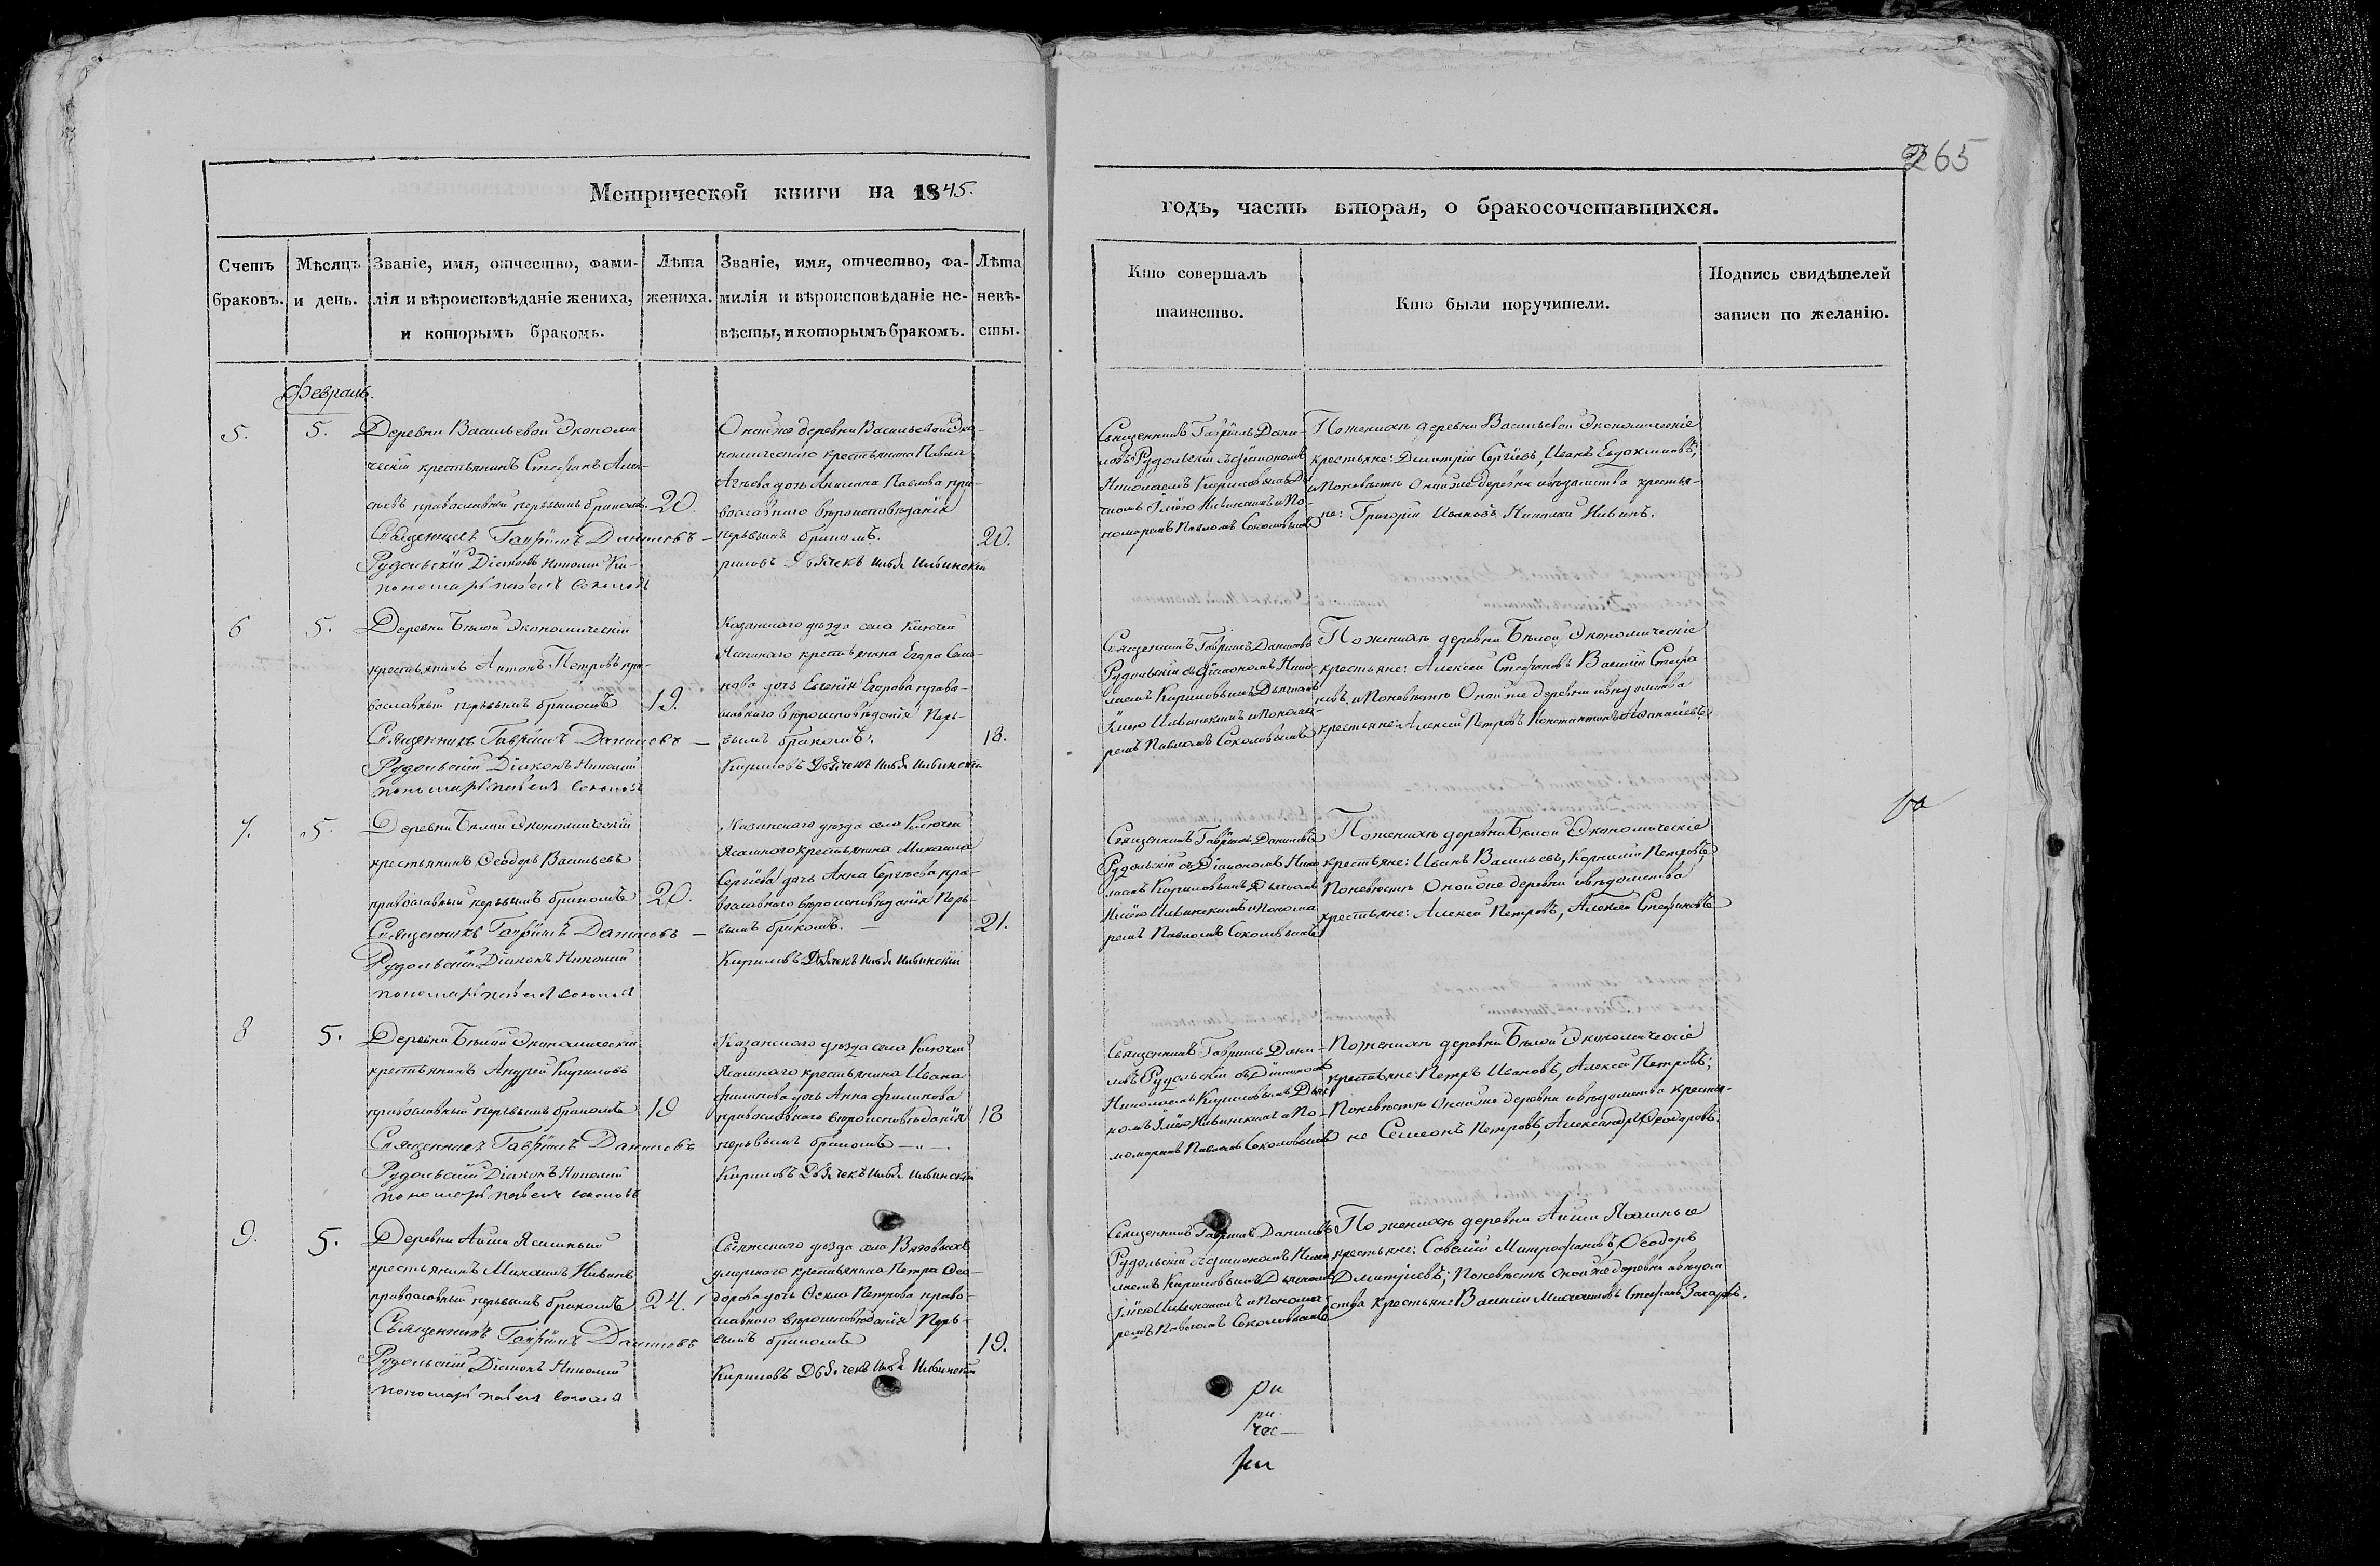 265
Метрической книги на 1845.
годъ, часть вторая, о бракосочетавшихся.
Счетъ браковъ.
Мѣсяцъ и день.
Званіе, имя, отчество, фами-
лія и вѣроисповѣданіе жениха,
и которымъ бракомъ.
Лѣта
жениха.
Званіе, имя, отчество, фа-
милія и вѣроисповѣданіе не-
вѣсты, и которымъ бракомъ.
Лѣта
невѣ-
сты.
Кто совершалъ
таинство.
Кто были поручители.
Подпись свидѣтелей
записи по желанію.
Февраль.
5.
5.
Деревни Васильевой Экономи
ческій крестьянинъ Стефанъ
православный первымъ бракомъ
20.
Священникъ Гавріилъ Даниловъ
Рудольскій Діаконъ Николай Ки-
пономарь Павелъ Соколовъ
Онойже деревни Васильевой Эко-
номическаго крестьянина Павла
дочь Акилина Павлова пра-
вославнаго вѣроисповѣданія
первымъ бракомъ.
20.
риловъ Дьячекъ Илья Ильинскій
Священникъ Гавріилъ Дани-
ловъ Рудольскій съ Діакономъ
Николаемъ Кириловымъ Дья
чкомъ Ильею Ильинскимъ и По-
номаремъ Павломъ Соколовымъ
По женихѣ деревни Васильевой Экономическіе
крестьяне: Дмитрій Сергіевъ, Иванъ Евдокимовъ;
и По невѣстѣ Онойже деревни и вѣдомства крестья-
не: Григорій Ивановъ Николай
6
5.
Деревни Бѣлой Экономическій
крестьянинъ Антонъ Петровъ пра-
вославный первымъ бракомъ
19.
Священникъ Гавріилъ Даниловъ
Рудольскій Діаконъ Николай
пономарь Павелъ Соколовъ
Казанскаго уѣзда села Ключей
Ясашнаго крестьянина Егора
дочь Евгенія Егорова право-
славнаго вѣроисповѣданія Пер-
вымъ бракомъ.
18.
Кириловъ Дьячекъ Илья Ильинскій
Священникъ Гавріилъ Даниловъ
Рудольскій съ Діакономъ Нико
лаемъ Кириловымъ Дьячкомъ
Ильею Ильинскимъ и Понома-
ремъ Павломъ Соколовымъ
По женихѣ деревни Бѣлой Экономическіе
крестьяне: Алексей Стефановъ Василій Стефа
новъ и По невѣстѣ Онойже деревни и вѣдомства
крестьяне: Алексей Петровъ Константинъ
7.
5.
Деревни Бѣлой Экономическій
крестьянинъ Ѳеодоръ Васильевъ
православный первымъ бракомъ
20.
Священникъ Гавріилъ Даниловъ
Рудольскій Діаконъ Николай
пономарь Павелъ Соколовъ
Казанскаго уѣзда села Ключей
Ясашнаго крестьянина Михаила
Сергіева дочь Анна Сергѣева пра-
вославнаго вѣроисповѣданія Пер-
вымъ бракомъ.
21.
Кириловъ Дьячекъ Илья Ильинскій
Священникъ Гавріилъ Даниловъ
Рудольскій съ Діакономъ Нико
лаемъ Кириловымъ Дьячкомъ
Ильею Ильинскимъ и Понома
ремъ Павломъ Соколовымъ
По женихѣ деревни Бѣлой Экономическіе
крестьяне: Иванъ Васильевъ, Корнилій Петровъ,
По невѣстѣ Онойже деревни и вѣдомства
крестьяне: Алексей Петровъ, Алексей Стефановъ
8
5.
Деревни Бѣлой Экономическій
крестьянинъ Андрей Кириловъ
православный первымъ бракомъ
19
Священникъ Гавріилъ Даниловъ
Рудольскій Діаконъ Николай
пономарь Павелъ Соколовъ
Казанскаго уѣзда села Ключей
Ясашнаго крестьянина Ивана
Филипова дочь Анна Филипова
православнаго вѣроисповѣданія
первымъ бракомъ
18
Кириловъ Дьячекъ Илья Ильинскій
Священникъ Гавріилъ Дани-
ловъ Рудольскій съ Діакономъ
Николаемъ Кириловымъ Дьяч
комъ Ильею Ильинскимъ и По-
номаремъ Павломъ Соколовымъ
По женихѣ деревни Бѣлой Экономическіе
крестьяне: Петръ Ивановъ, Алексей Петровъ;
По невѣстѣ Онойже деревни и вѣдомства крестья-
не Семеонъ Петровъ, Александръ Ѳеодоровъ.
9.
5.
Деревни Айши Ясашный
крестьянинъ Михаилъ
православный первымъ бракомъ
24.
Священникъ Гавріилъ Даниловъ
Рудольскій Діаконъ Николай
пономарь Павелъ Соколовъ
Свіяжскаго уѣзда села Вязовыхъ
крестьянина Петра Ѳео-
дорова дочь Ѳекла Петрова право-
славнаго вѣроисповѣданія Пер-
вымъ бракомъ
19.
Кириловъ Дьячекъ Илья Ильинскій
Священникъ Гавріилъ Даниловъ
Рудольскій съ Діакономъ Нико
лаемъ Кириловымъ Дьячкомъ
Ильею Ильинскимъ и Понома
ремъ Павломъ Соколовымъ
По женихѣ деревни Айши Ясашные
крестьяне: Савелій Митрофановъ, Ѳеодоръ
Дмитріевъ; По невѣстѣ Онойже деревни и вѣдом
ства крестьяне Василій Михаиловъ Стефанъ Захаровъ.